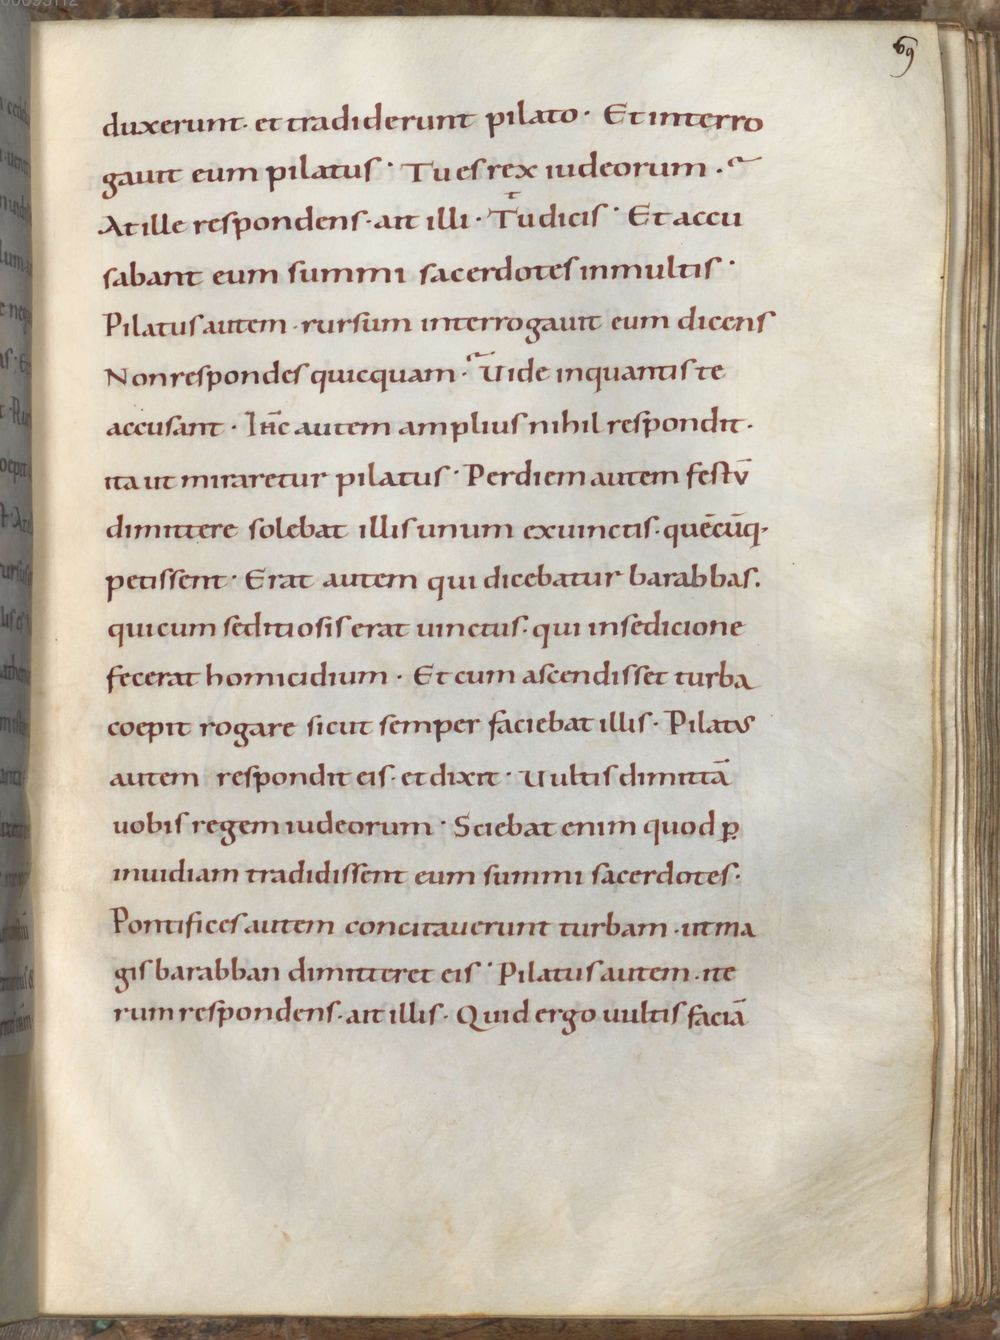 69
duxerunt· et tradiderunt pilato· Et interro
gauit eum pilatus· Tu es rex iudeorum·
At ille respondens· ait illi· Tu dicis· Et accu
sabant eum summi sacerdotes in multis·
Pilatus autem· rursum interrogauit eum dicens
Non respondes quicquam· Uide in quantis te
accusant· Ihc̄ autem amplius nihil respondit·
ita ut miraretur pilatus· Per diem autem festū
dimittere solebat illis unum ex uinctis· quēcūq·
petissent· Erat autem qui dicebatur barabbas.
qui cum seditiosis erat uinctus· qui in sedicione
fecerat homicidium· Et cum ascendisset turba
coepit rogare sicut semper faciebat illis· Pilatus
autem respondit eis· et dixit· Uultis dimittā
uobis regem iudeorum· Sciebat enim quod ꝑ
inuidiam tradidissent eum summi sacerdotes·
Pontifices autem concitauerunt turbam· ut ma
gis barabban dimitteret eis· Pilatus autem· ite
rum respondens· ait illis· Quid ergo uultis faciā